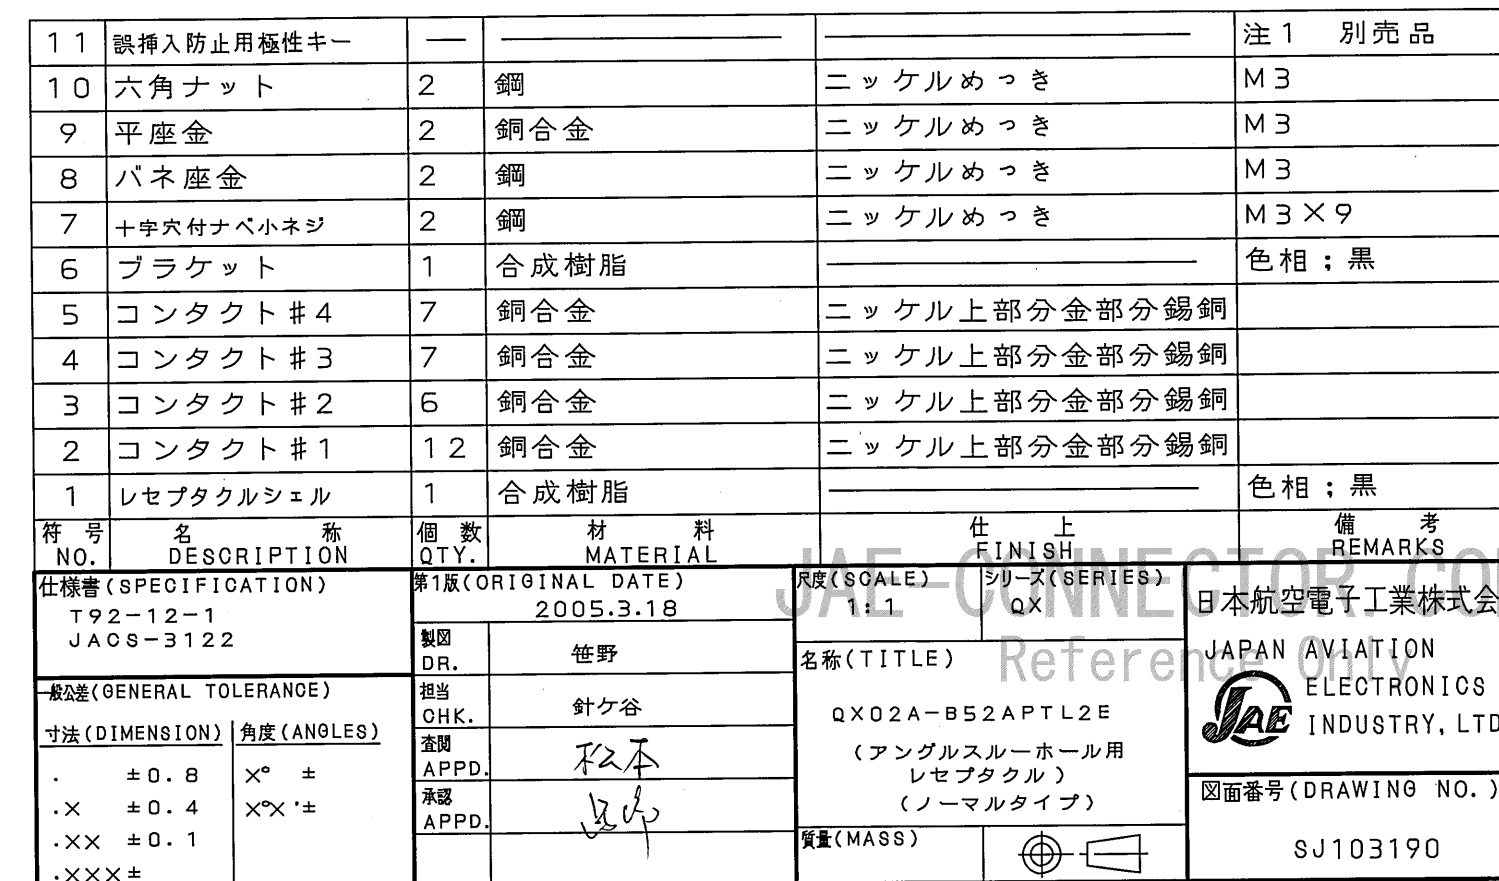 11 誤挿入防止用極性キー 注1 別売品
10 六角ナット 2 鋼 ニッケルめっき M3
9 平座金 2 銅合金 ニッケルめっき M3
8 バネ座金 2 鋼 ニッケルめっき M3
7 十字穴付ナベ小ネジ 2 鋼 ニッケルめっき M3×9
6 ブラケット 1 合成樹脂 色相;黒
5 コンタクト#4 7 銅合金 ニッケル上部分金部分錫銅
4 コンタクト#3 7 銅合金 ニッケル上部分金部分錫銅
3 コンタクト#2 6 銅合金 ニッケル上部分金部分錫銅
2 コンタクト#1 12 銅合金 ニッケル上部分金部分錫銅
1 レセプタクルシェル 1 合成樹脂 色相;黒
符号 名称 個数 材料 仕上 備考
NO. DESCRIPTION QTY. MATERIAL FINISH REMARKS
JAE-CONNECTOR.CO
Reference Only
仕様書(SPECIFICATION)
T92-12-1
JACS-3122
一般公差(GENERAL TOLERANCE)
寸法(DIMENSION) 角度(ANGLES)
. ±0.8 X° ±
.X ±0.4 X°X'±
.XX ±0.1
.XXX±
第1版(ORIGINAL DATE)
2005.3.18
製図
DR. 笹野
担当
CHK. 針ケ谷
査閲
APPD. 松本
承認
APPD.
尺度(SCALE)
1:1
シリーズ(SERIES)
QX
名称(TITLE)
QX02A-B52APTL2E
(アングルスルーホール用
レセプタクル)
(ノーマルタイプ)
質量(MASS)
日本航空電子工業株式会
JAPAN AVIATION
ELECTRONICS
INDUSTRY, LTD
JAE
図面番号(DRAWING NO.)
SJ103190